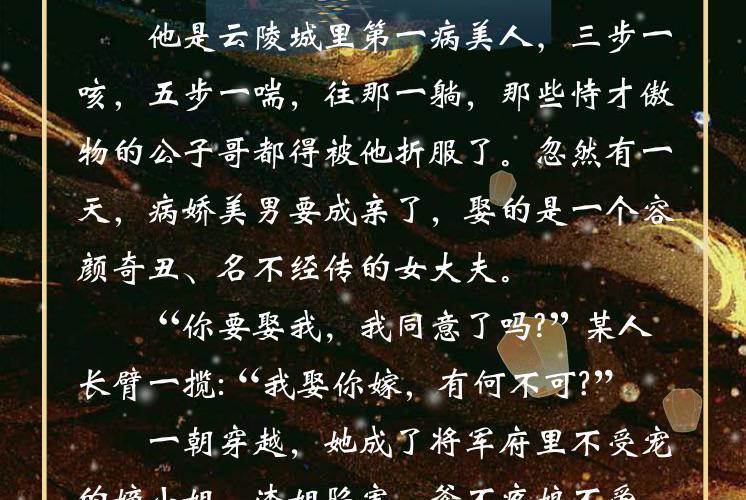 他是云陵城里第一病美人，三步一
咳，五步一喘，往那一躺，那些恃才傲
物的公子哥都得被他折服了。忽然有一
天，病娇美男要成亲了，娶的是一个容
颜奇丑、名不经传的女大夫。
“你要娶我，我同意了吗?”某人
长臂一揽:“我娶你嫁，有何不可?”
一朝穿越，她成了将军府里不受宠
的嫡小姐，渣姐陷害，爹不疼娘不爱，